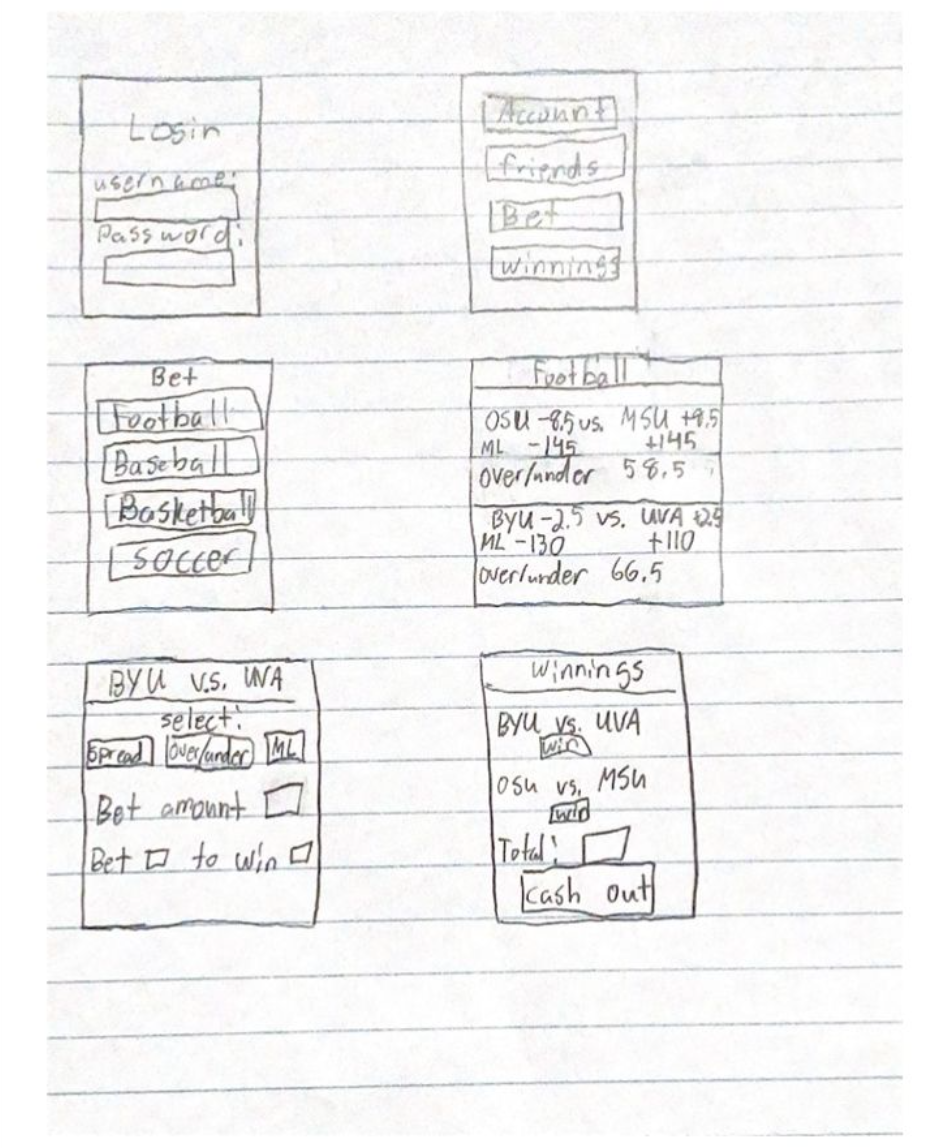 Login
username:
Password:
Account
friends
Bet
winnings
Bet
Football
Baseball
Basketball
soccer
Football
OSU -8.5 vs. MSU +8.5
ML -145 +145
over/under 58.5
BYU -2.5 vs. UVA +2.5
ML -130 +110
over/under 66.5
BYU V.S. UVA
select:
Spread over/under ML
Bet amount
Bet to win
winnings
BYU vs. UVA
win
OSU vs. MSU
win
Total:
cash out